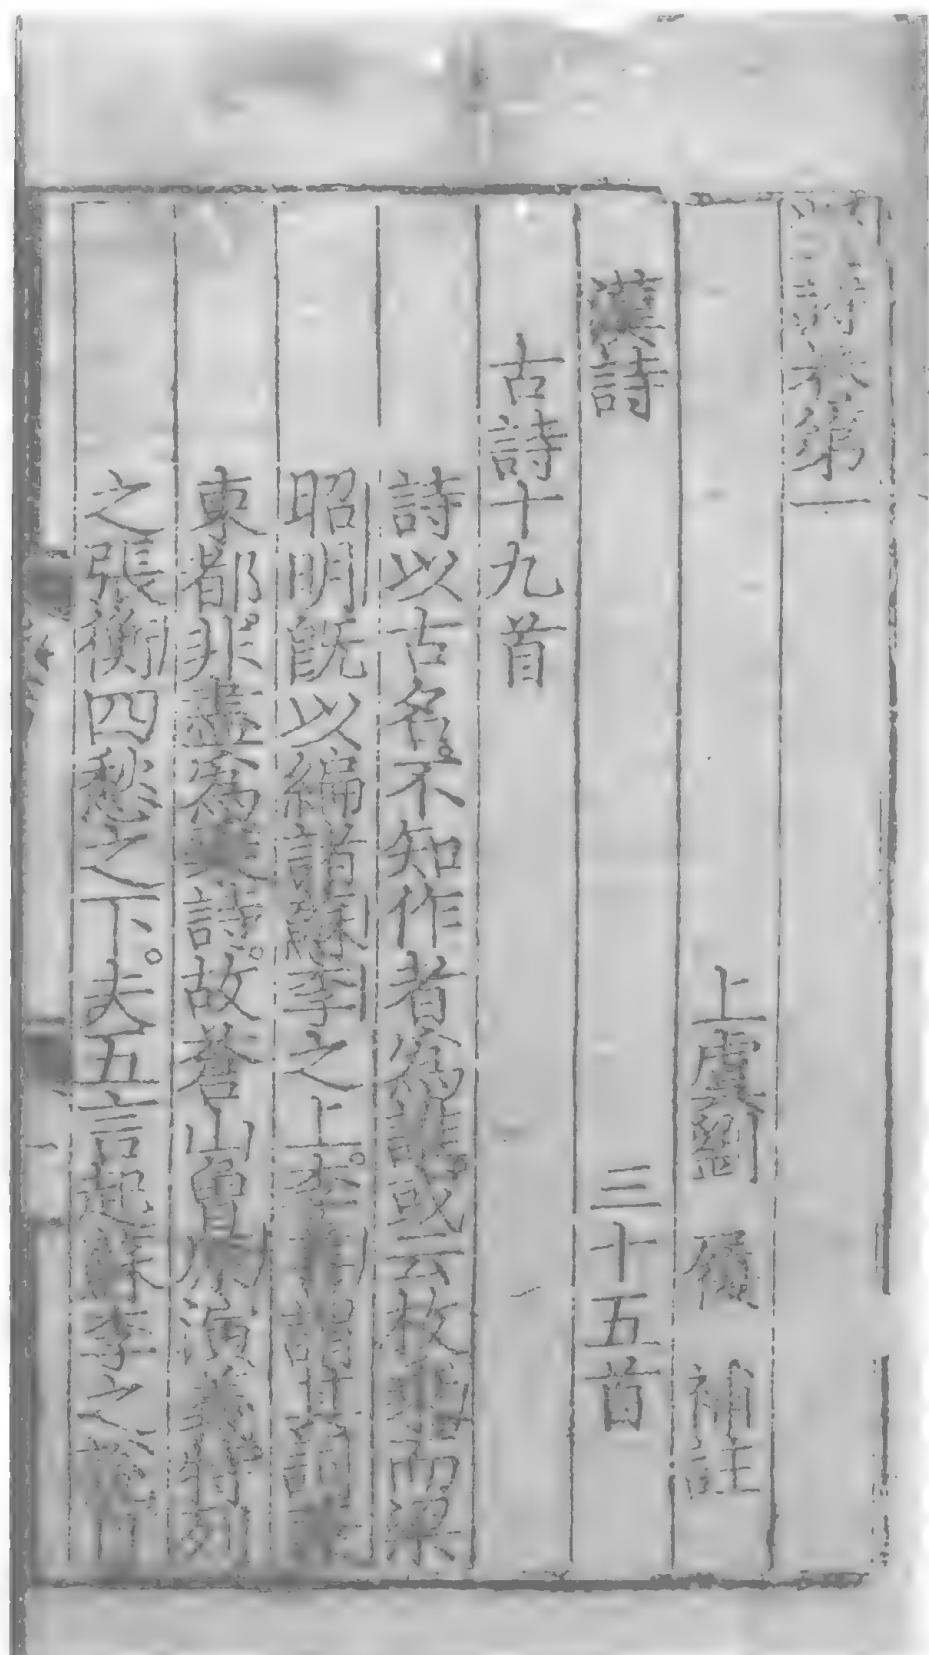 第一
上虞劉 履 補註
漢詩 三十五首
古詩十九首
詩以古名。不知作者為誰。或云枚乘而梁
昭明旣以編諸蘇李之上。李
東都。非盡為詩。故蒼山曾原演義特列
之張衡四愁之下。夫五言起蘇李之